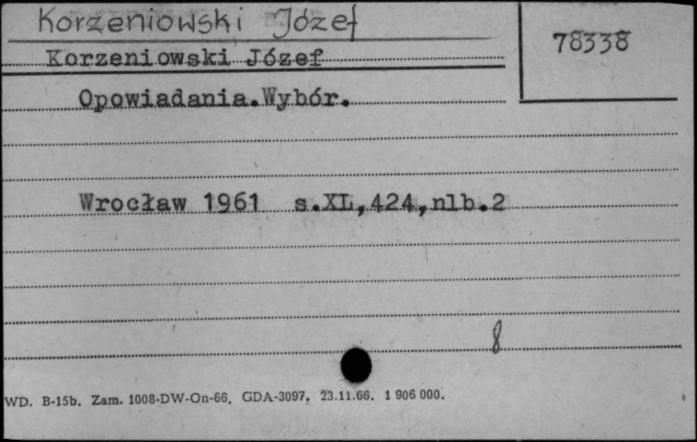 Korzeniowski Józef
78338
Korzeniowski Józef
Opowiadania.Wybór.
Wrocław 1961 s.XL,424,nlb.2
8
WD. B-15b. Zam. 1008-DW-On-66. GDA-3097. 23.11.66. 1 906 000.